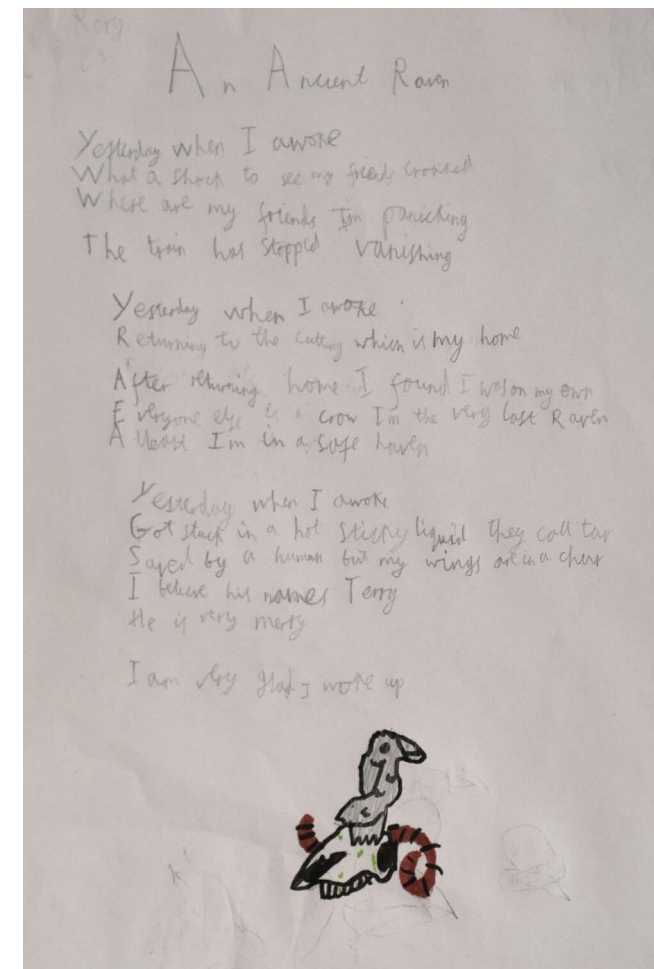 Rory
An Ancient Raven
Yesterday when I awoke
What a shock to see my friends croaked
Where are my friends Im panicking
The train has stopped vanishing
Yesterday when I awoke
Returning to the cutting which is my home
After returning home I found I was on my own
Everyone else is a crow I'm the very last Raven
At least I'm in a safe haven
Yesterday when I awoke
Got stuck in a hot sticky liquid they call tar
Saved by a human but my wings are in a char
I believe his names Terry
He is very merry
I am very glad I woke up